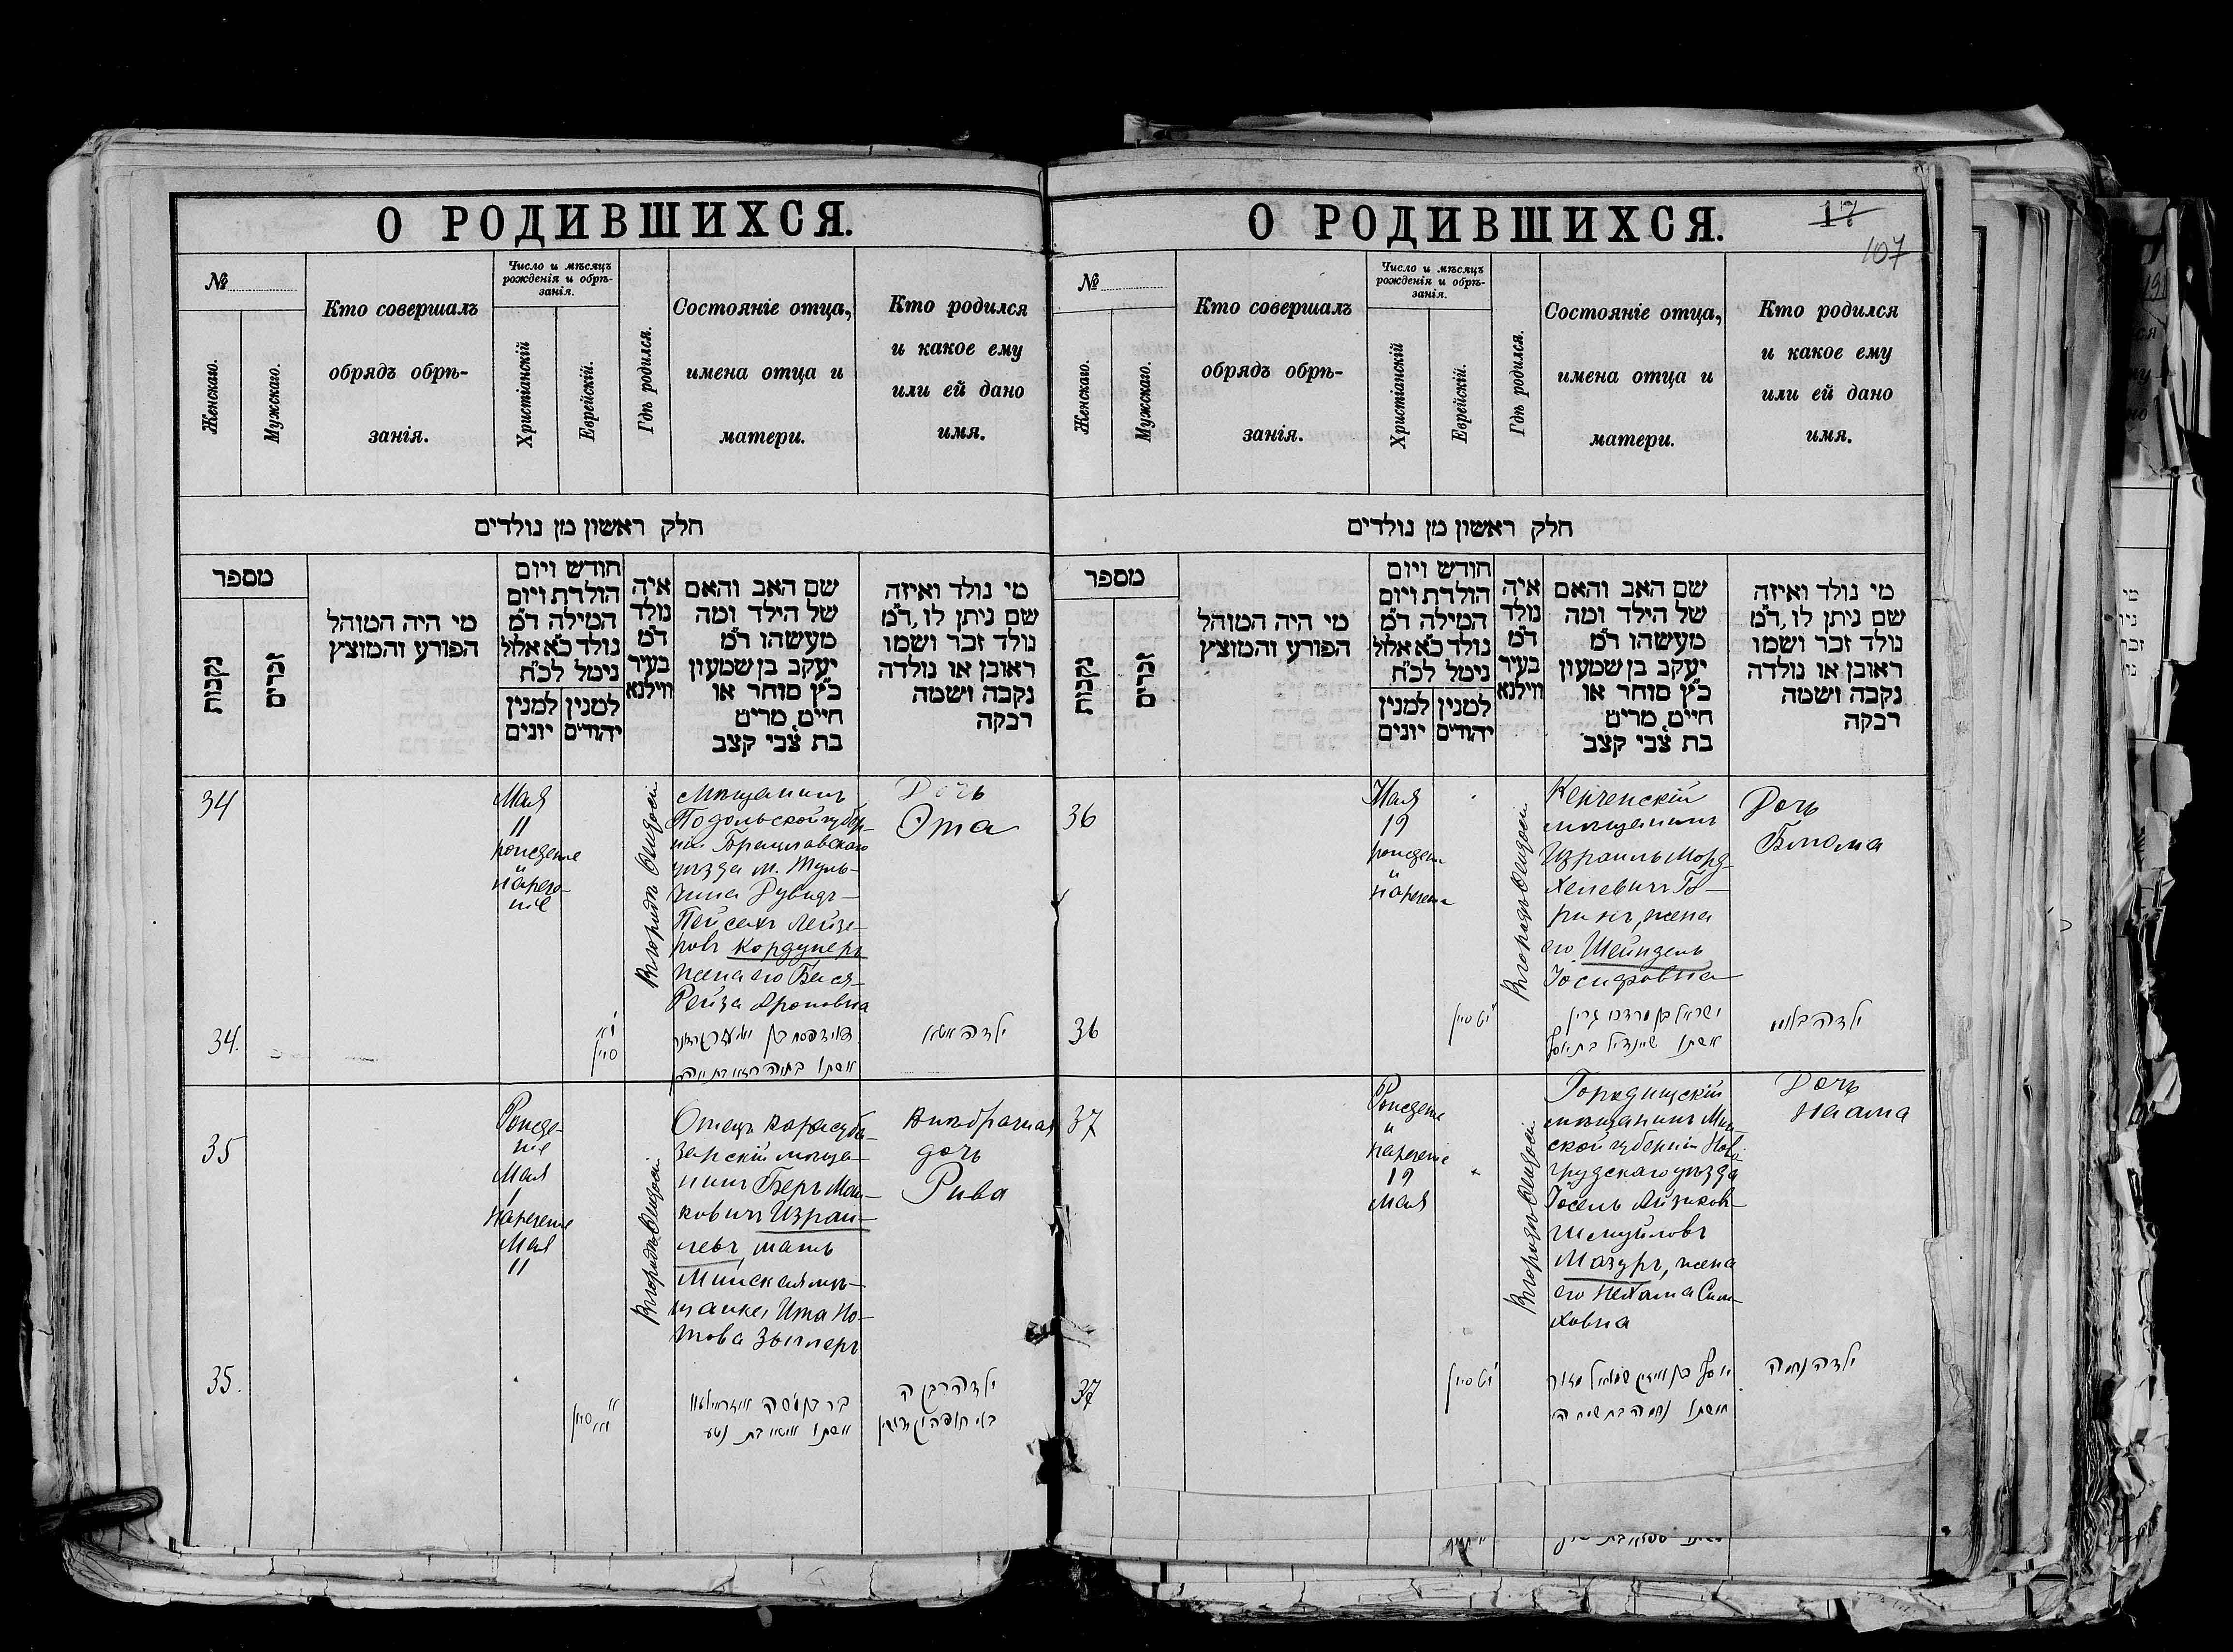 О РОДИВШИХСЯ.
№
Женскаго.
Мужскаго.
Кто совершалъ
обрядъ обрѣ-
занія.
Число и мѣсяцъ
рожденія и обрѣ-
занія.
Христіанскій
Еврейскій.
Гдѣ родился.
Состояніе отца,
имена отца и
матери.
Кто родился
и какое ему
или ей дано
имя.
חלק ראשון מן נולדים
מספר
נקבות
זכרים
מי היה המוהל
הפורע והמוצץ
חודש ויום
הולדת ויום
המילה ד"מ
נולד כ"א אלול
נימל לכ"ח
למנין
יונים
למנין
יהודים
איה
נולד
ד"מ
בעיר
ווילנא
שם האב והאם
של הילד ומה
מעשהו ד"מ
יעקב בן שמעון
כ"ץ סוחר או
חיים מרים
בת צבי קצב
מי נולד ואיזה
שם ניתן לו, ד"מ
נולד זכר ושמו
ראובן או נולדה
נקבה ושמה
רבקה
34
Мая
11
рожденіе
и
нарече-
ніе
Мѣщанинъ
Подольской губер-
ніи Брацлавскаго
уѣзда м. Туль-
чина Дувидъ-
Пейсахъ Лейзе-
ровъ Кордунеръ
жена его Бася-
Рейза Ароновна
Дочь
Эта
34.
ילדה אטא
35
Рожде-
ніе
Мая
1
Нареченіе
Мая
11
Отецъ Карасуба-
зарскій мѣща-
нинъ Беръ Мош-
ковичъ Израи-
левъ, мать
Минская мѣ-
щанка Ита Но-
това
Внѣбрачная
дочь
Рива
35.
ילדה רבקה
О РОДИВШИХСЯ.
17
107
№
Женскаго.
Мужскаго.
Кто совершалъ
обрядъ обрѣ-
занія.
Число и мѣсяцъ
рожденія и обрѣ-
занія.
Христіанскій
Еврейскій.
Гдѣ родился.
Состояніе отца,
имена отца и
матери.
Кто родился
и какое ему
или ей дано
имя.
חלק ראשון מן נולדים
מספר
נקבות
זכרים
מי היה המוהל
הפורע והמוצץ
חודש ויום
הולדת ויום
המילה ד"מ
נולד כ"א אלול
נימל לכ"ח
למנין
יונים
למנין
יהודים
איה
נולד
ד"מ
בעיר
ווילנא
שם האב והאם
של הילד ומה
מעשהו ד"מ
יעקב בן שמעון
כ"ץ סוחר או
חיים מרים
בת צבי קצב
מי נולד ואיזה
שם ניתן לו, ד"מ
נולד זכר ושמו
ראובן או נולדה
נקבה ושמה
רבקה
36
Мая
19
рожденіе
и
нареченіе
Керченскій
мѣщанинъ
Израиль Морд-
хелевичъ Го-
ринъ, жена
его Шейндель
Іосифовна
Дочь
Блюма
36
ישראל בן מרדכי גרין
אשתו שיינדיל בת יוסף
ילדה בלומא
37
Рожденіе
и
нареченіе
19
Мая
Городищскій
мѣщанинъ Мин-
ской губерніи Ново-
грудскаго уѣзда
Іосель Айзиковъ-
Шмуйловъ
Мазуръ, жена
его Нехама Сим-
ховна
Дочь
Наама
37
ילדה נעמה